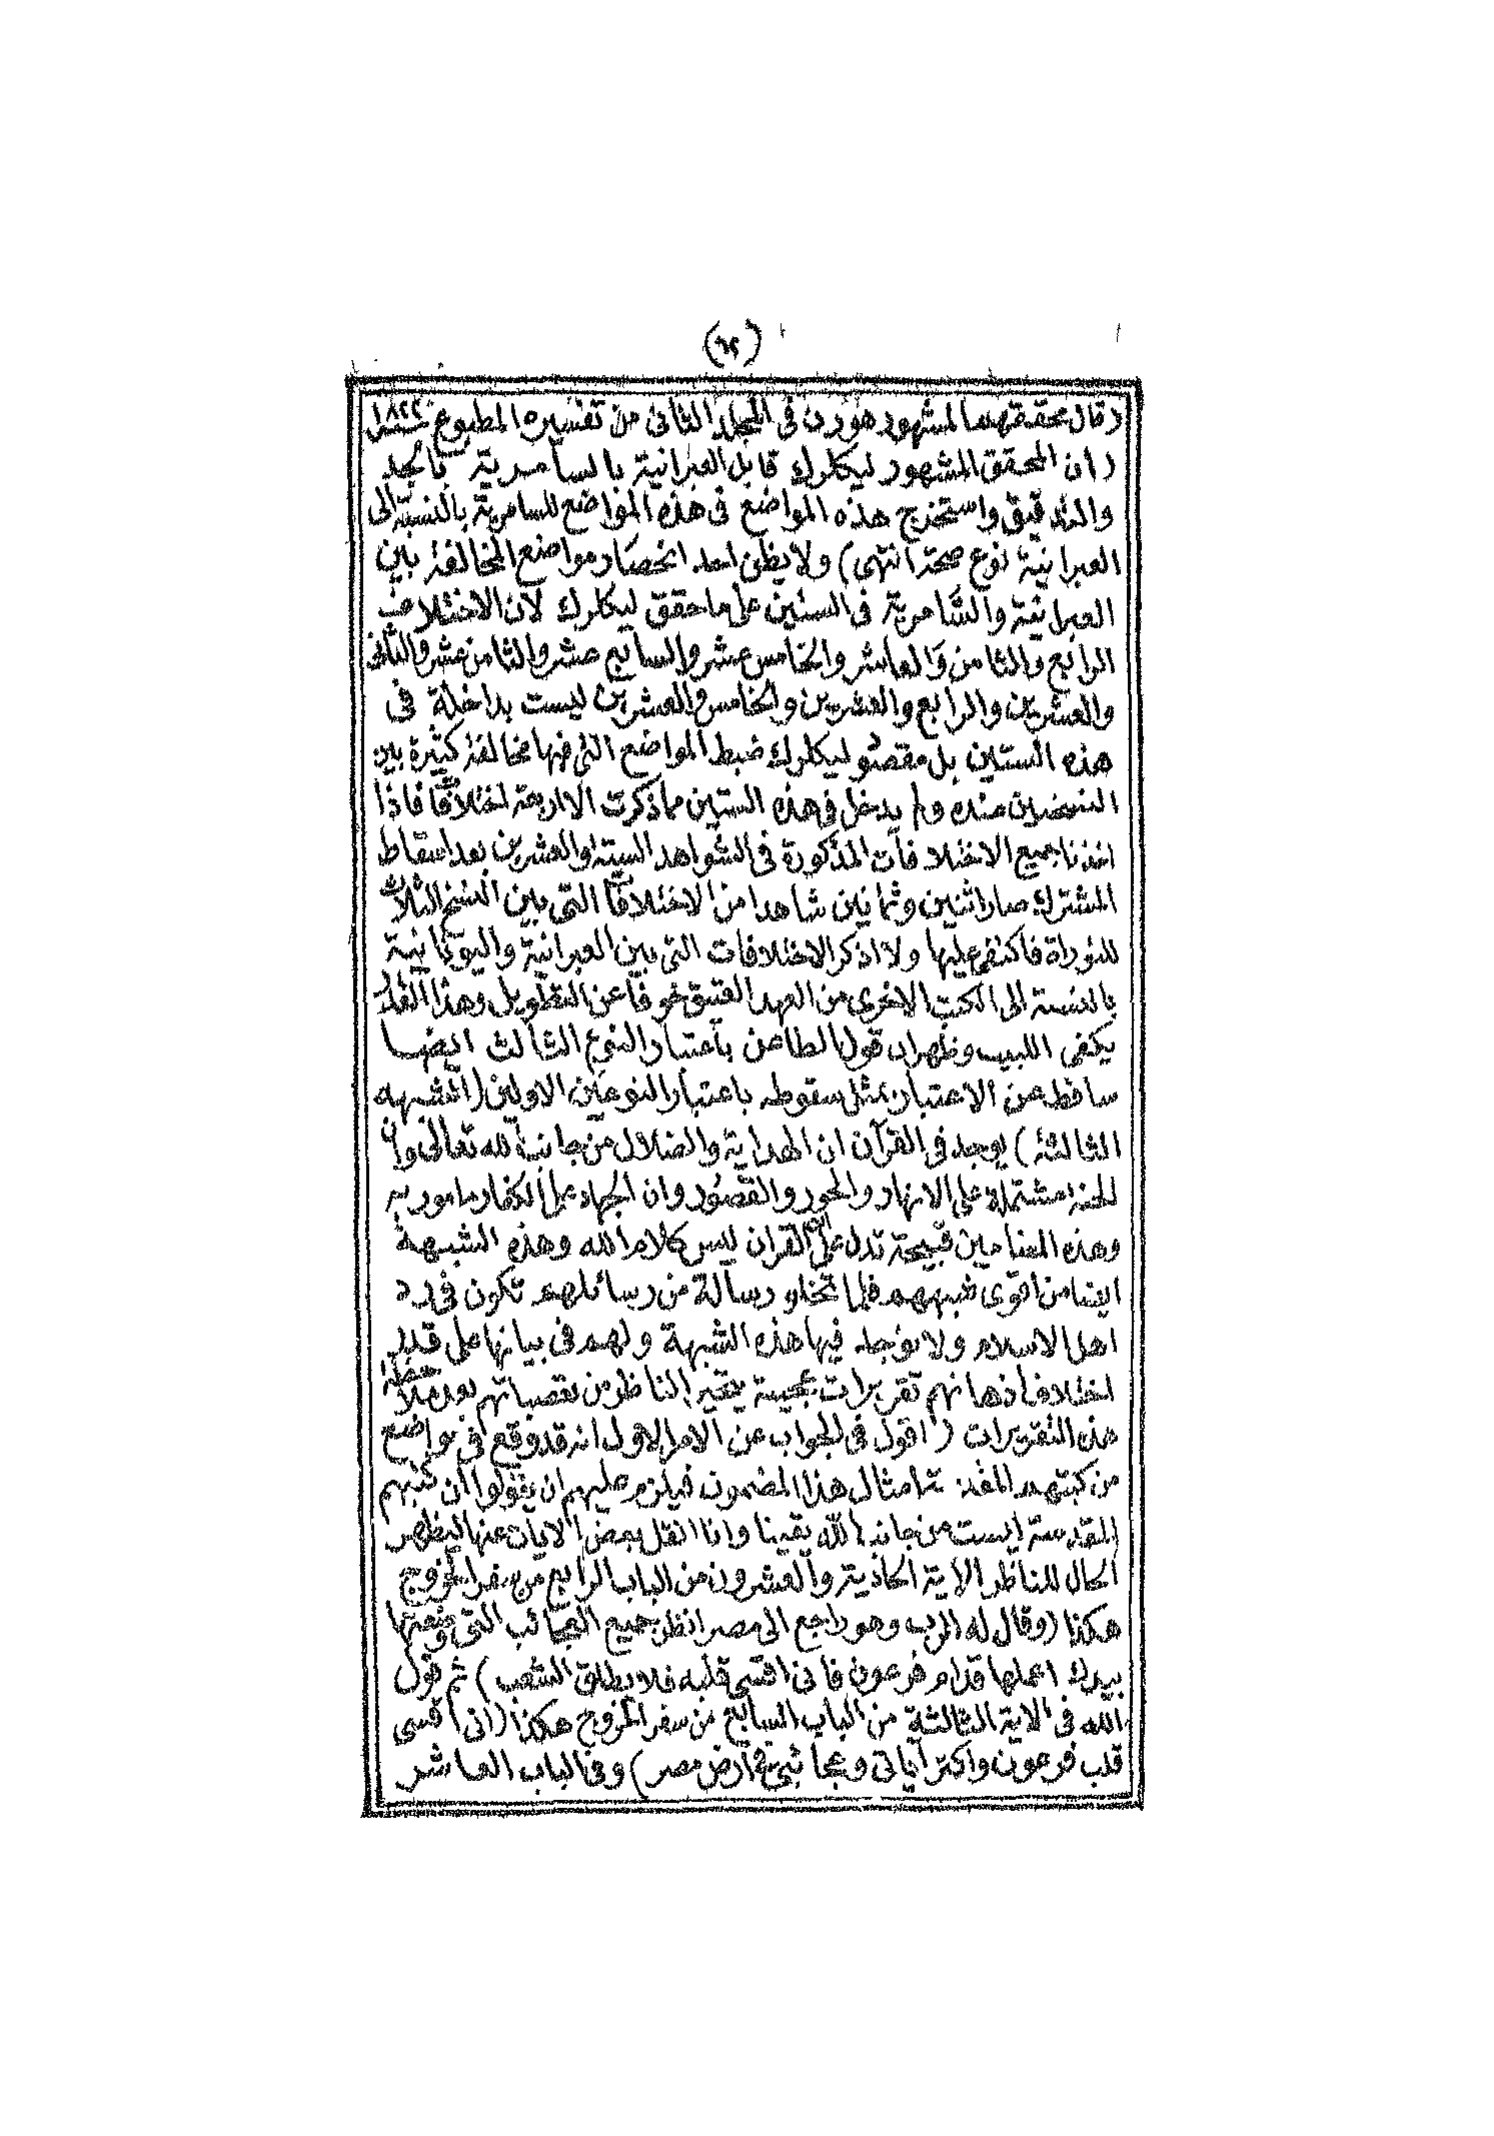 وقال محققهم المشهور هورن في المجلد الثاني من تفسيره المطبوع سنة ١٨٢٢
(ان المحقق المشهور ليكلرك قابل العبرانية بالسامرية بالجد
والتدقيق واستخرج هذه المواضع في هذه المواضع للسامرية بالنسبة الى
العبرانية نوع صحة انتهى) ولا يظن احد انحصار مواضع المخالفة بين
العبرانية والسامرية في الستين على ما حقق ليكلرك لان الاختلاف
الرابع والثامن والعاشر والخامس عشر والسابع عشر والثامن عشر والثاني
والعشرين والرابع والعشرين والخامس والعشرين ليست بداخلة في
هذه الستين بل مقصود ليكلرك ضبط المواضع التي فيها مخالفة كثيرة بين
النسختين عنده ولم يدخل في هذه الستين مما ذكرت الا اربعة اختلافات فاذا
اخذنا جميع الاختلافات المذكورة في الشواهد الستة والعشرين بعد اسقاط
المشترك صار اثنين وثمانين شاهدا من الاختلافات التي بين النسخ الثلاث
للتوراة فاكتفي عليها ولا اذكر الاختلافات التي بين العبرانية واليونانية
بالنسبة الى الكتب الاخرى من العهد العتيق خوفا عن التطويل وهذا القدر
يكفى اللبيب وظهر ان قول الطاعن باعتبار النوع الثالث ايضا
ساقط عن الاعتبار بمثل سقوطه باعتبار النوعين الاولين (الشبهه
الثالثة) يوجد في القرآن ان الهداية والضلال من جانب الله تعالى وان
الجنة مشتملة على الانهار والحور والقصور وان الجهاد على الكفار مامور به
وهذه المضامين قبيحة تدل على ان القران ليس كلام الله وهذه الشبهة
ايضا من اقوى شبههم فلما تخلو رسالة من رسائلهم تكون في رد
اهل الاسلام ولا توجد فيها هذه الشبهة ولهم في بيانها على قدر
اختلاف اذهانهم تقريرات عجيبة يتحير الناظر من تعصباتهم بعد ملاحظة
هذه التقريرات (اقول في الجواب عن الامر الاول انه قد وقع في مواضع
من كتبهم المقدسة امثال هذا المضمون فيلزم عليهم ان يقولوا ان كتبهم
المقدسة ليست من جانب الله يقينا وانا انقل بعض الايات عنها ليظهر
الحال للناظر الاية الحادية والعشرون من الباب الرابع من سفر الخروج
هكذا (وقال له الرب وهو راجع الى مصر انظر جميع العجائب التي وضعتها
بيدك اعملها قدام فرعون فاني اقسى قلبه فلا يطلق الشعب) ثم قول
الله في الاية الثالثة من الباب السابع من سفر الخروج هكذا (اني اقسى
قلب فرعون واكثر آياتي وعجائبي في ارض مصر) وفي الباب العاشر